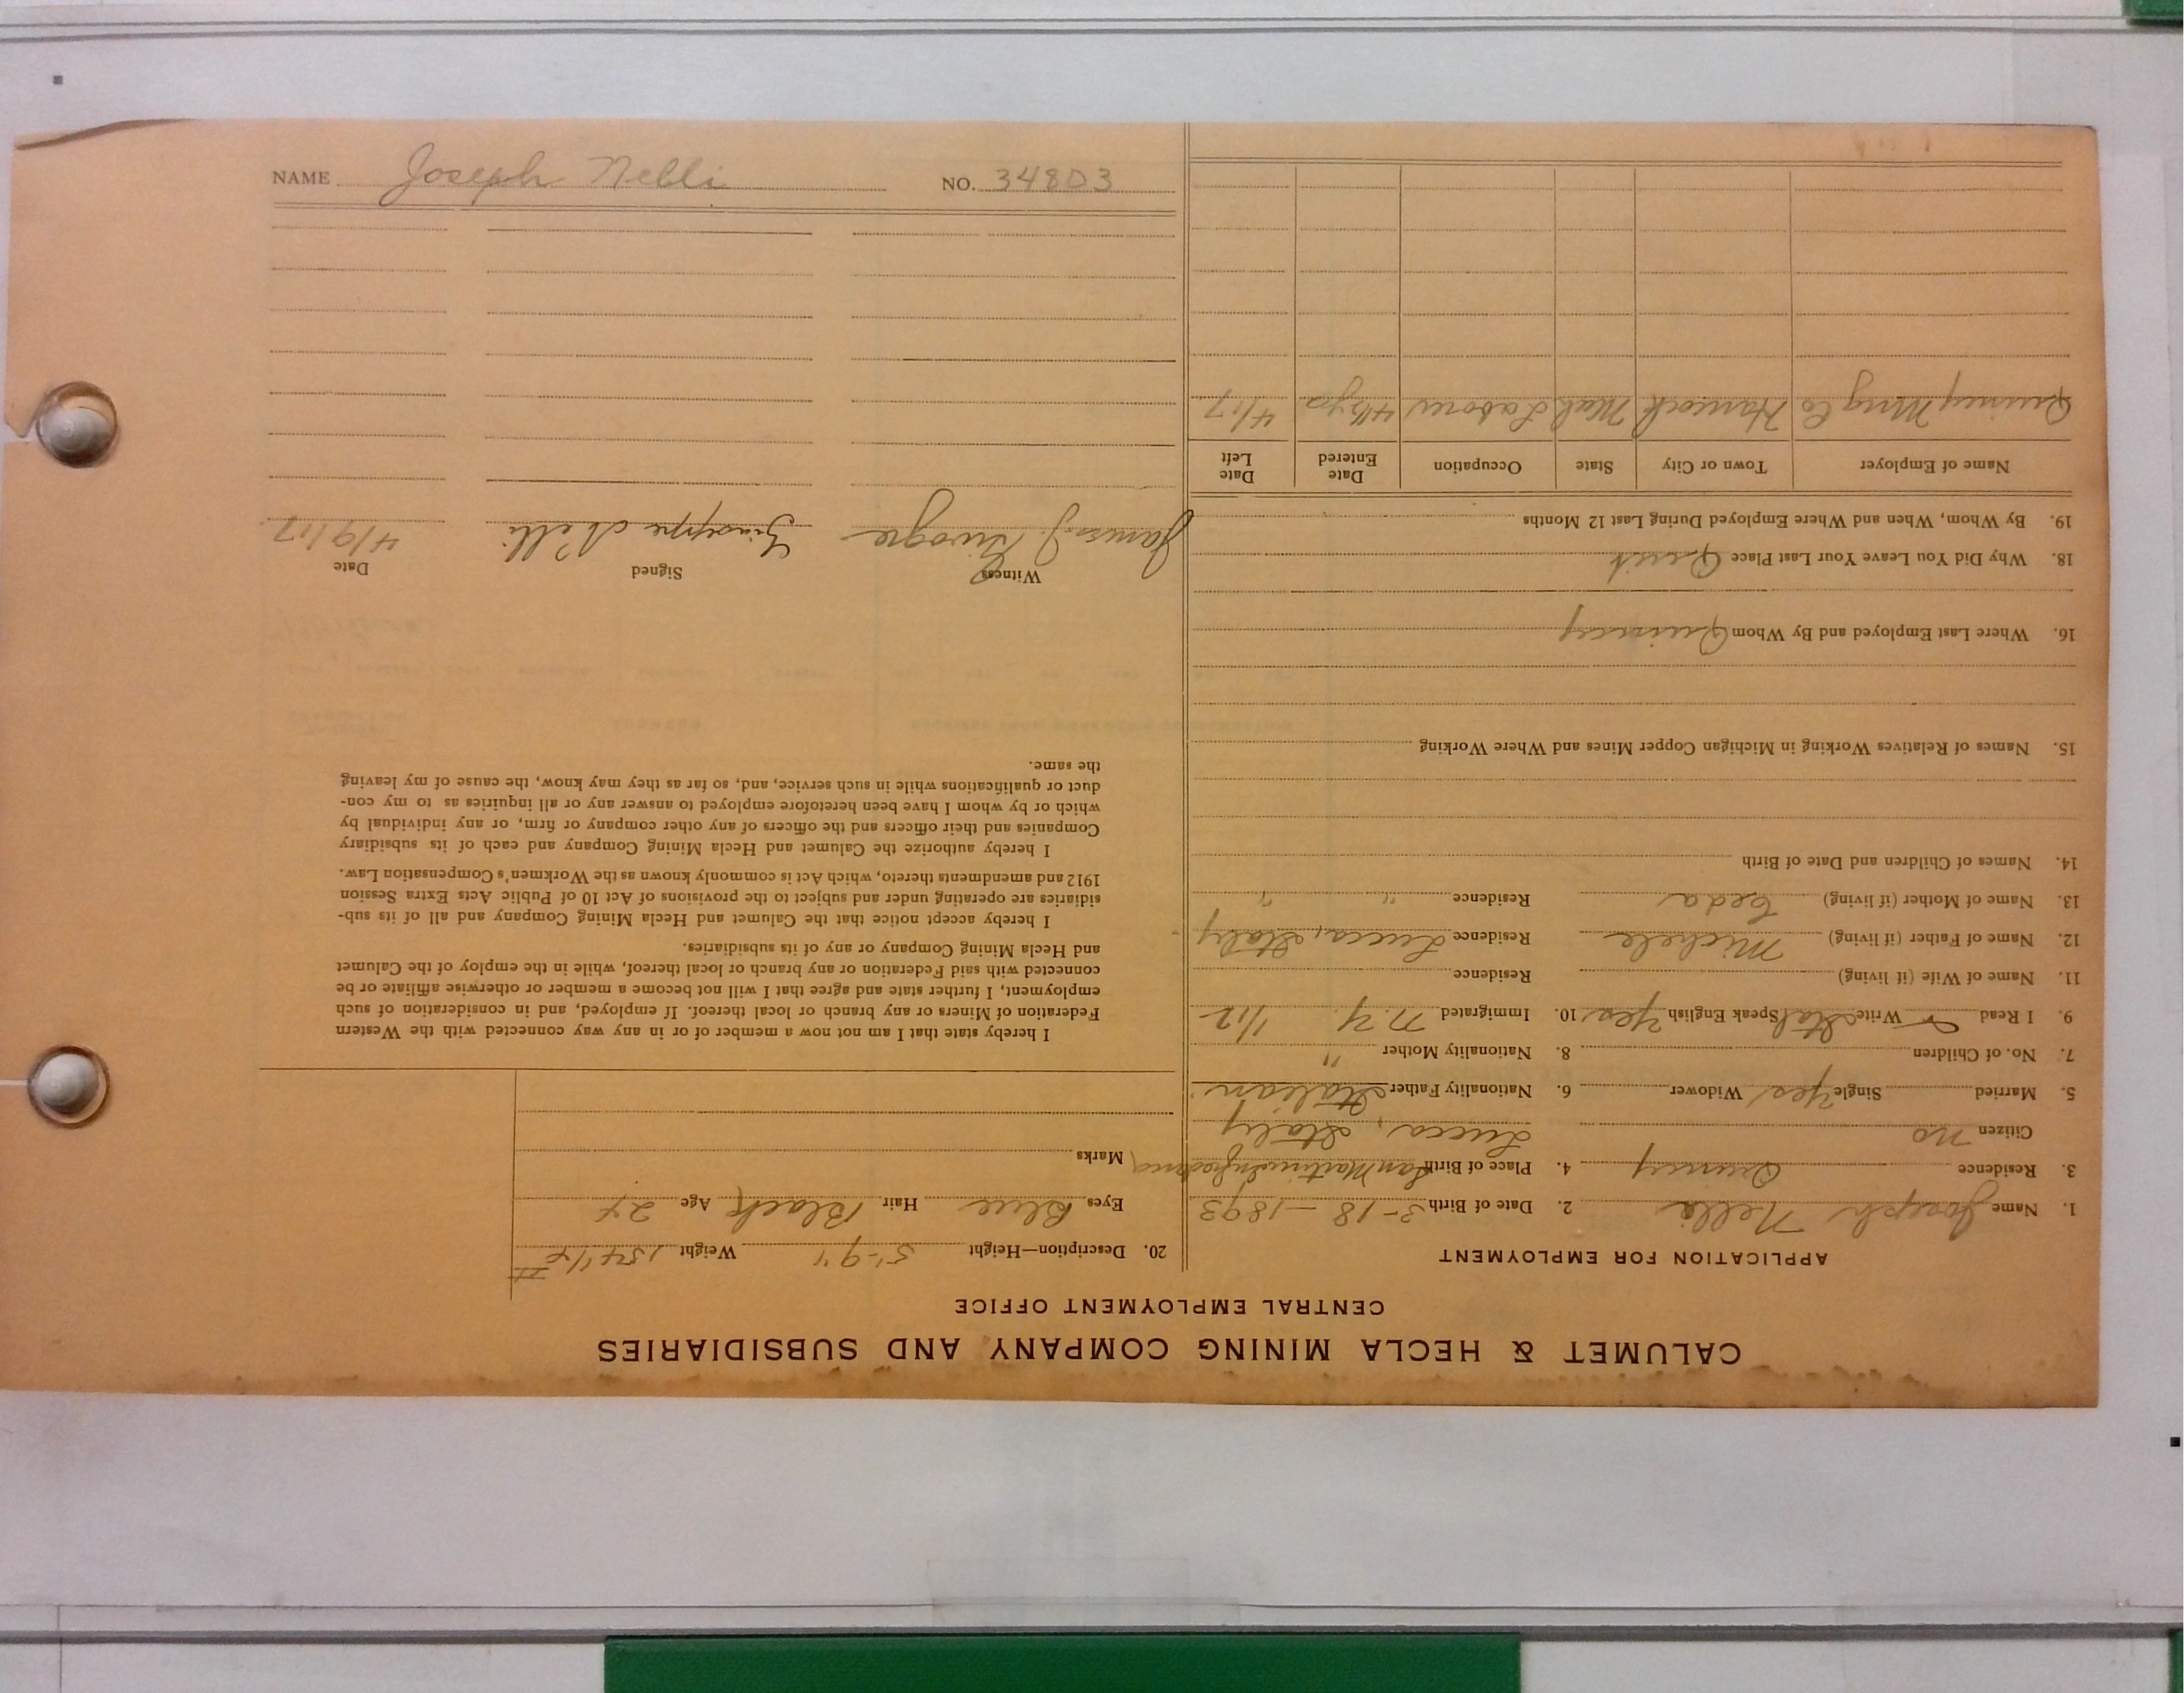 CALUMET & HECLA MINING COMPANY AND SUBSIDIARIES
CENTRAL EMPLOYMENT OFFICE
APPLICATION FOR EMPLOYMENT
1. Name Joseph Nelli 2. Date of Birth 3-18-1893
3. Residence Quincy 4. Place of Birth San Martino in
Citizen no Lucca, Italy
5. Married Single Yes Widower 6. Nationality Father Italian
7. No. of Children 8. Nationality Mother "
9. I Read Write Ital Speak English Yes 10. Immigrated N.Y. 1/12
11. Name of Wife (if living) Residence
12. Name of Father (if living) Michele Residence Lucca, Italy
13. Name of Mother (if living) Residence " "
14. Names of Children and Date of Birth
15. Names of Relatives Working in Michigan Copper Mines and Where Working
16. Where Last Employed and By Whom Quincy
18. Why Did You Leave Your Last Place Quit
19. By Whom, When and Where Employed During Last 12 Months
Name of Employer Town or City State Occupation Date Entered Date Left
Quincy Mng Co Hancock Mich Laborer 4½ yrs 4/17
20. Description—Height 5'-9" Weight 154 1/2 #
Eyes Blue Hair Black Age 24
Marks
I hereby state that I am not now a member of or in any way connected with the Western
Federation of Miners or any branch or local thereof. If employed, and in consideration of such
employment, I further state and agree that I will not become a member or otherwise affiliate or be
connected with said Federation or any branch or local thereof, while in the employ of the Calumet
and Hecla Mining Company or any of its subsidiaries.
I hereby accept notice that the Calumet and Hecla Mining Company and all of its sub-
sidiaries are operating under and subject to the provisions of Act 10 of Public Acts Extra Session
1912 and amendments thereto, which Act is commonly known as the Workmen's Compensation Law.
I hereby authorize the Calumet and Hecla Mining Company and each of its subsidiary
Companies and their officers and the officers of any other company or firm, or any individual by
which or by whom I have been heretofore employed to answer any or all inquiries as to my con-
duct or qualifications while in such service, and, so far as they may know, the cause of my leaving
the same.
Witness Signed Date
James J. Giuseppe Nelli 4/9/17
NAME Joseph Nelli NO. 34803